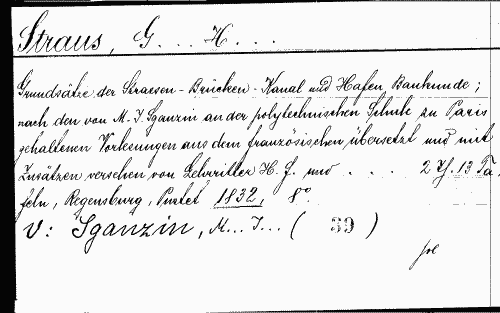 Straus, G... H...
Grundsätze der Strassen- Brücken- Kanal und Hafen Baukunde;
nach den von M. I. Sganzin an der polytechnischen Schule zu Paris
gehaltenen Vorlesungen aus dem französischen übersetzt und mit
Zusätzen versehen von Lehritter H. J. und .... 2 13 Ta
feln, Regensburg, Pustet 1832, 8°
V: Sganzin, M... I... ( 39 )